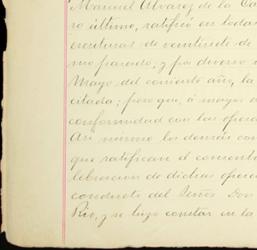 Manuel Alvarez de la Ca
ro último, ratificó en todas
escrituras de veintisiete de
mo pasado; y por diverso
Mayo del corriente año, la
citada; pero que, á mayor a
conformidad con las opera
Así mismo los demás con
que ratifican el consenti
lebracion de dichas opera
conducto del Señor Don
Rio, y se hizo constar en la